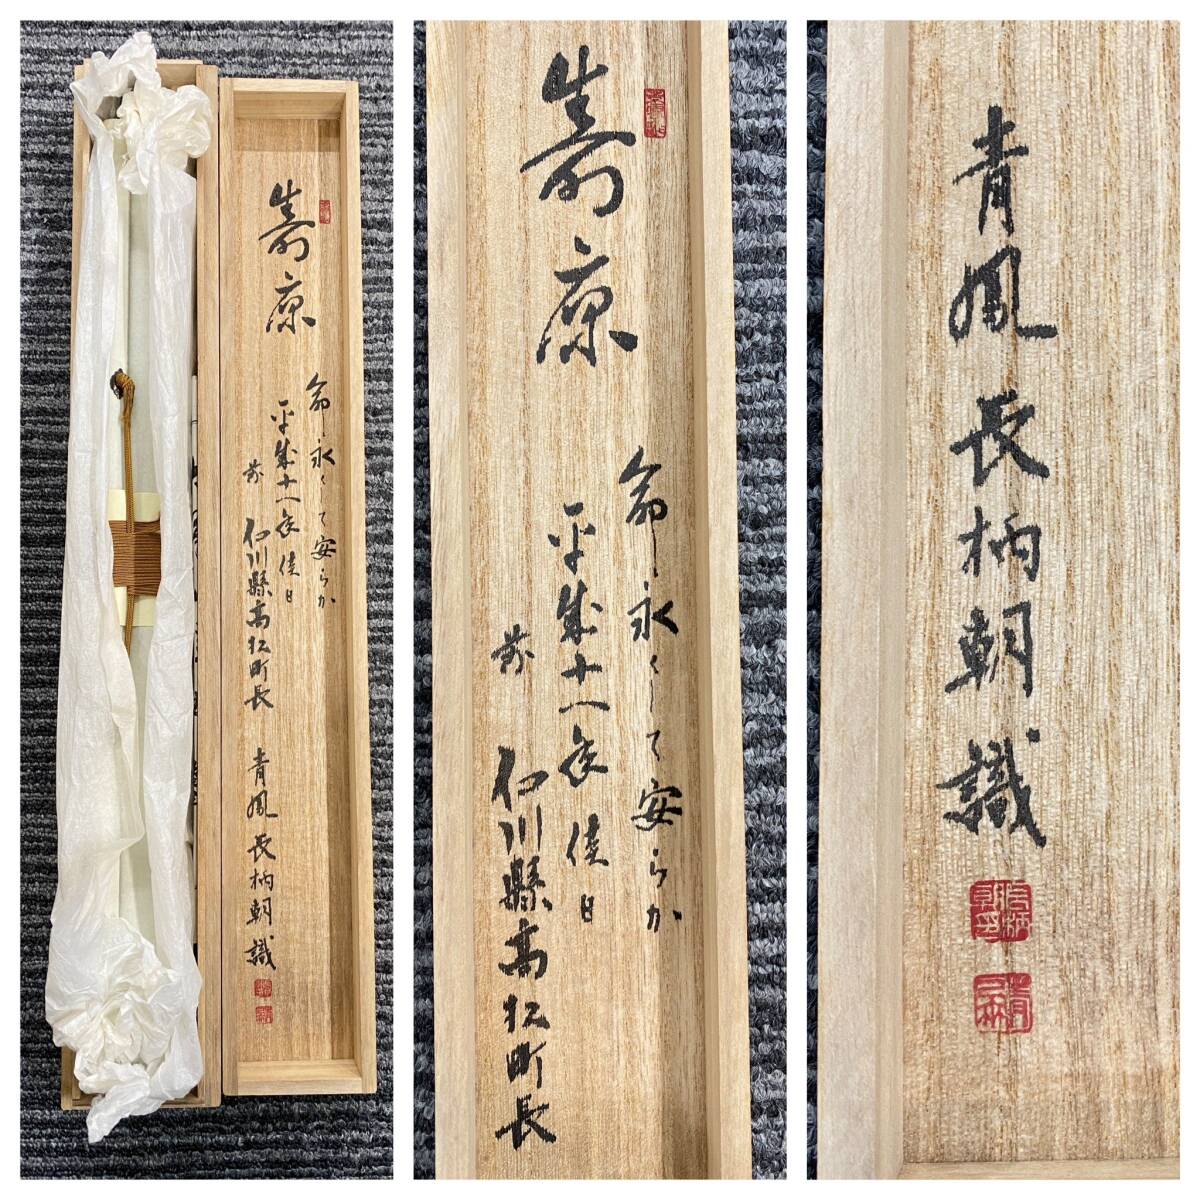 壽康
命永くして安らか
平成十一年 佳日
前 石川縣高松町長 青鳳 長柄朝識
壽康
命永くして安らか
平成十一年 佳日
前 石川縣高松町長
青鳳 長柄朝識
長柄朝印